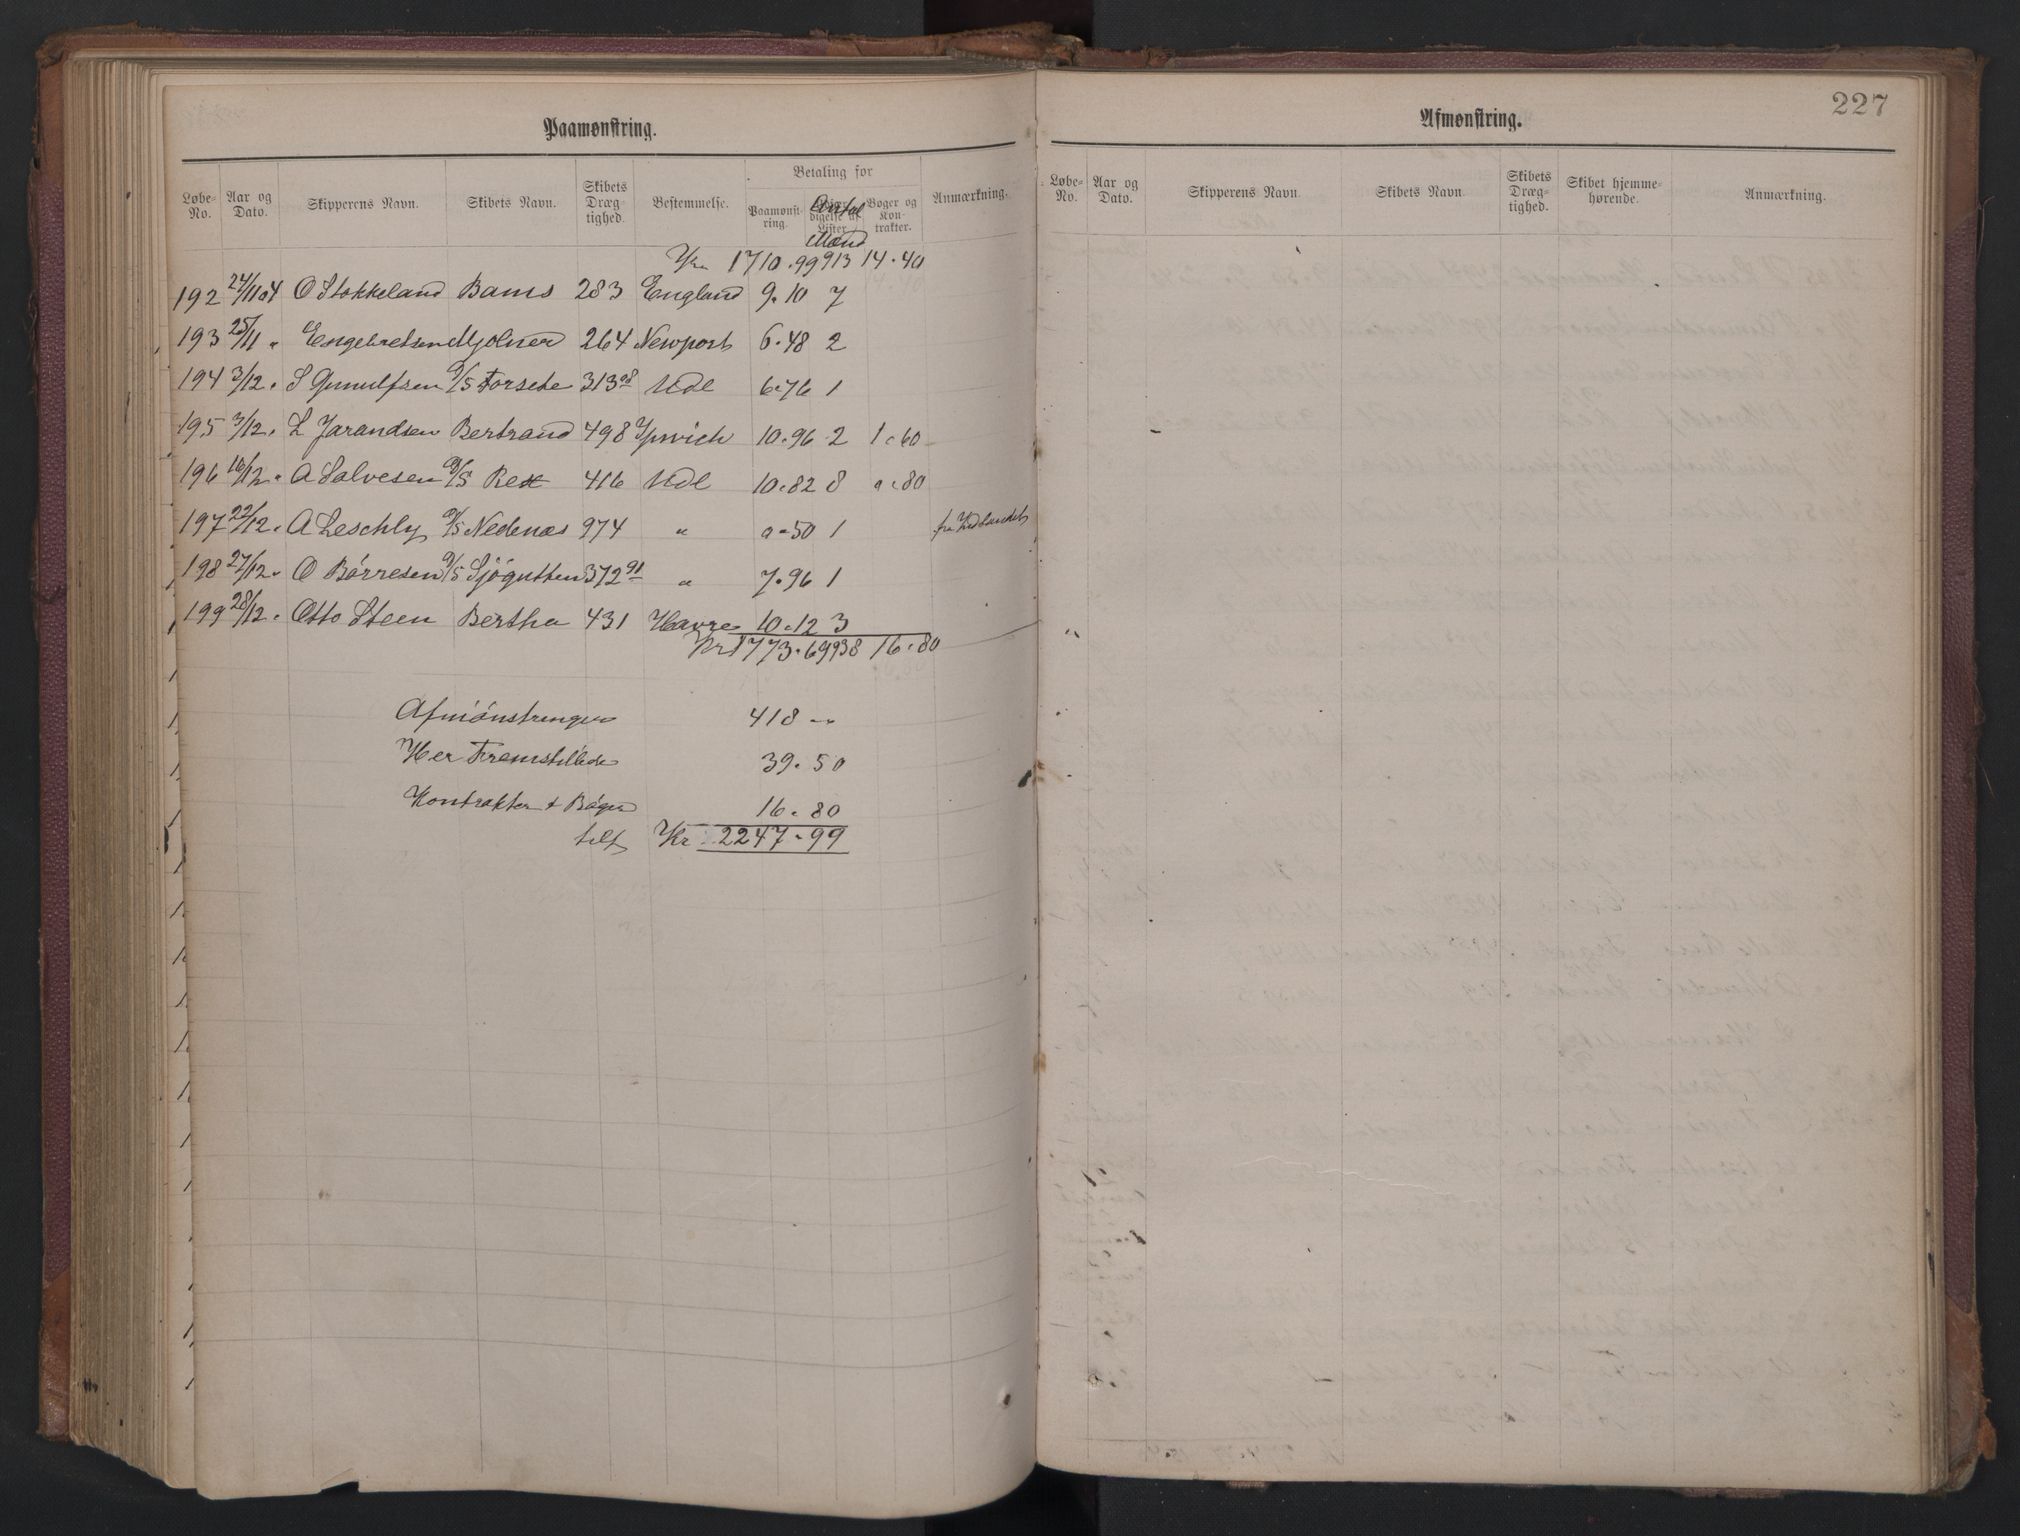 Paamønstring.
Løbe-No. Aar og Dato. Skipperens Navn. Skibets Navn. Skibets Dræg-tighed. Bestemmelse. Betaling for Paamønst-ring. digelse af Lister Antal Mænd Bøger og Kon-trakter. Anmærkning.
Kr 1710.99 913 14.40
192 24/11 04 O Stokkeland Bams 283 England 9.10 7
193 25/11 " Engebretsen Mjolner 264 Newport 6.48 2
194 3/12 " S Gunulfsen D/S Forsete 313 98 Udl 6.76 1
195 3/12 " L Jarandsen Bertrand 498 Ipswich 10.96 2 1.60
196 16/12 " A Salvesen D/S Rex 416 Udl 10.82 8 ".80
197 22/12 " A Leschly D/S Nedenæs 974 " ".50 1 fra Udlandet
198 27/12 " O Börresen D/S Sjögutten 372 91 " 7.96 1
199 28/12 " Otto Steen Bertha 431 Havre 10.12 3
Kr 1773.69 938 16.80
Afmönstringer 418 "
Her Fremstillede 39.50
Kontrakter & Böger 16.80
tils Kr 2247.99
227
Afmønstring.
Løbe-No. Aar og Dato. Skipperens Navn. Skibets Navn. Skibets Dræg-tighed. Skibet hjemme-hørende. Anmærkning.